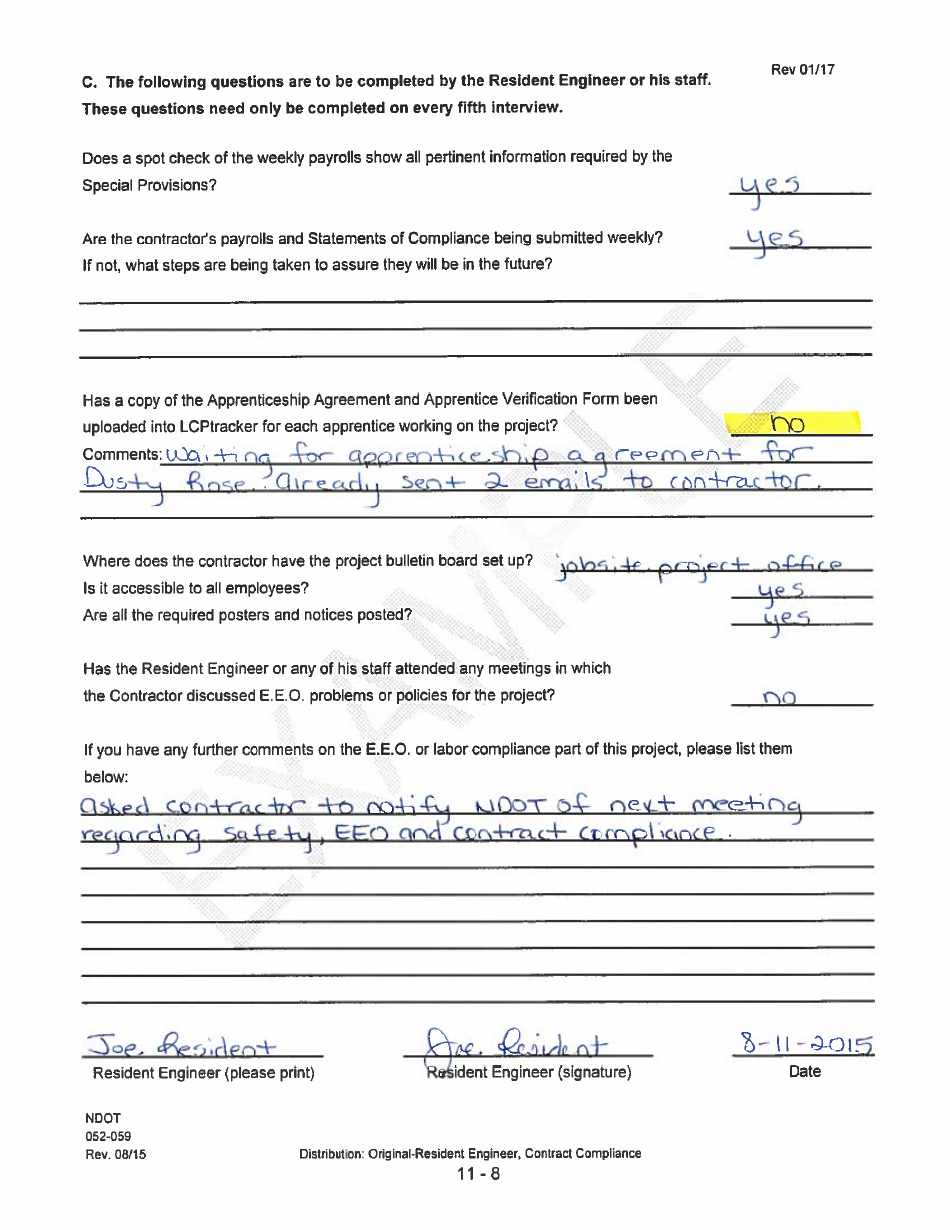 Rev 01/17
C. The following questions are to be completed by the Resident Engineer or his staff.
These questions need only be completed on every fifth interview.
Does a spot check of the weekly payrolls show all pertinent information required by the
Special Provisions? yes
Are the contractor's payrolls and Statements of Compliance being submitted weekly? yes
If not, what steps are being taken to assure they will be in the future?
Has a copy of the Apprenticeship Agreement and Apprentice Verification Form been
uploaded into LCPtracker for each apprentice working on the project? no
Comments: Waiting for apprenticeship agreement for
Dusty Rose. Already sent 2 emails to contractor.
Where does the contractor have the project bulletin board set up? jobsite project office
Is it accessible to all employees? yes
Are all the required posters and notices posted? yes
Has the Resident Engineer or any of his staff attended any meetings in which
the Contractor discussed E.E.O. problems or policies for the project? no
If you have any further comments on the E.E.O. or labor compliance part of this project, please list them
below:
asked contractor to notify NDOT of next meeting
regarding safety, EEO and contract compliance.
EXAMPLE
Joe Resident Joe Resident 8-11-2015
Resident Engineer (please print) Resident Engineer (signature) Date
NDOT
052-059
Rev. 08/15 Distribution: Original-Resident Engineer, Contract Compliance
11 - 8